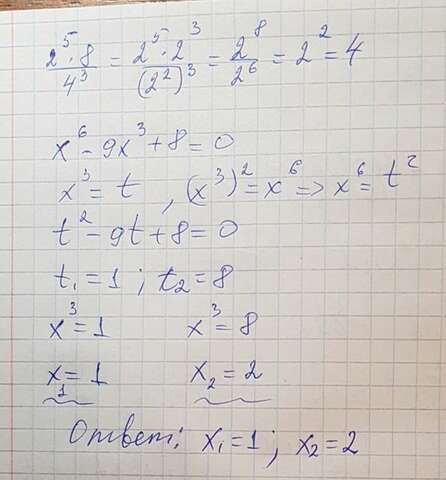 2⁵·8/4³ = 2⁵·2³/(2²)³ = 2⁸/2⁶ = 2² = 4
x⁶ - 9x³ + 8 = 0
x³ = t , (x³)² = x⁶ => x⁶ = t²
t² - 9t + 8 = 0
t₁ = 1 ; t₂ = 8
x³ = 1 x³ = 8
x₁ = 1 x₂ = 2
Ответ: x₁ = 1 ; x₂ = 2